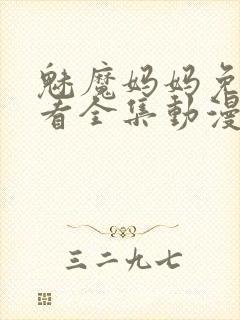 魅魔妈妈免
看全集動漫
三二九七